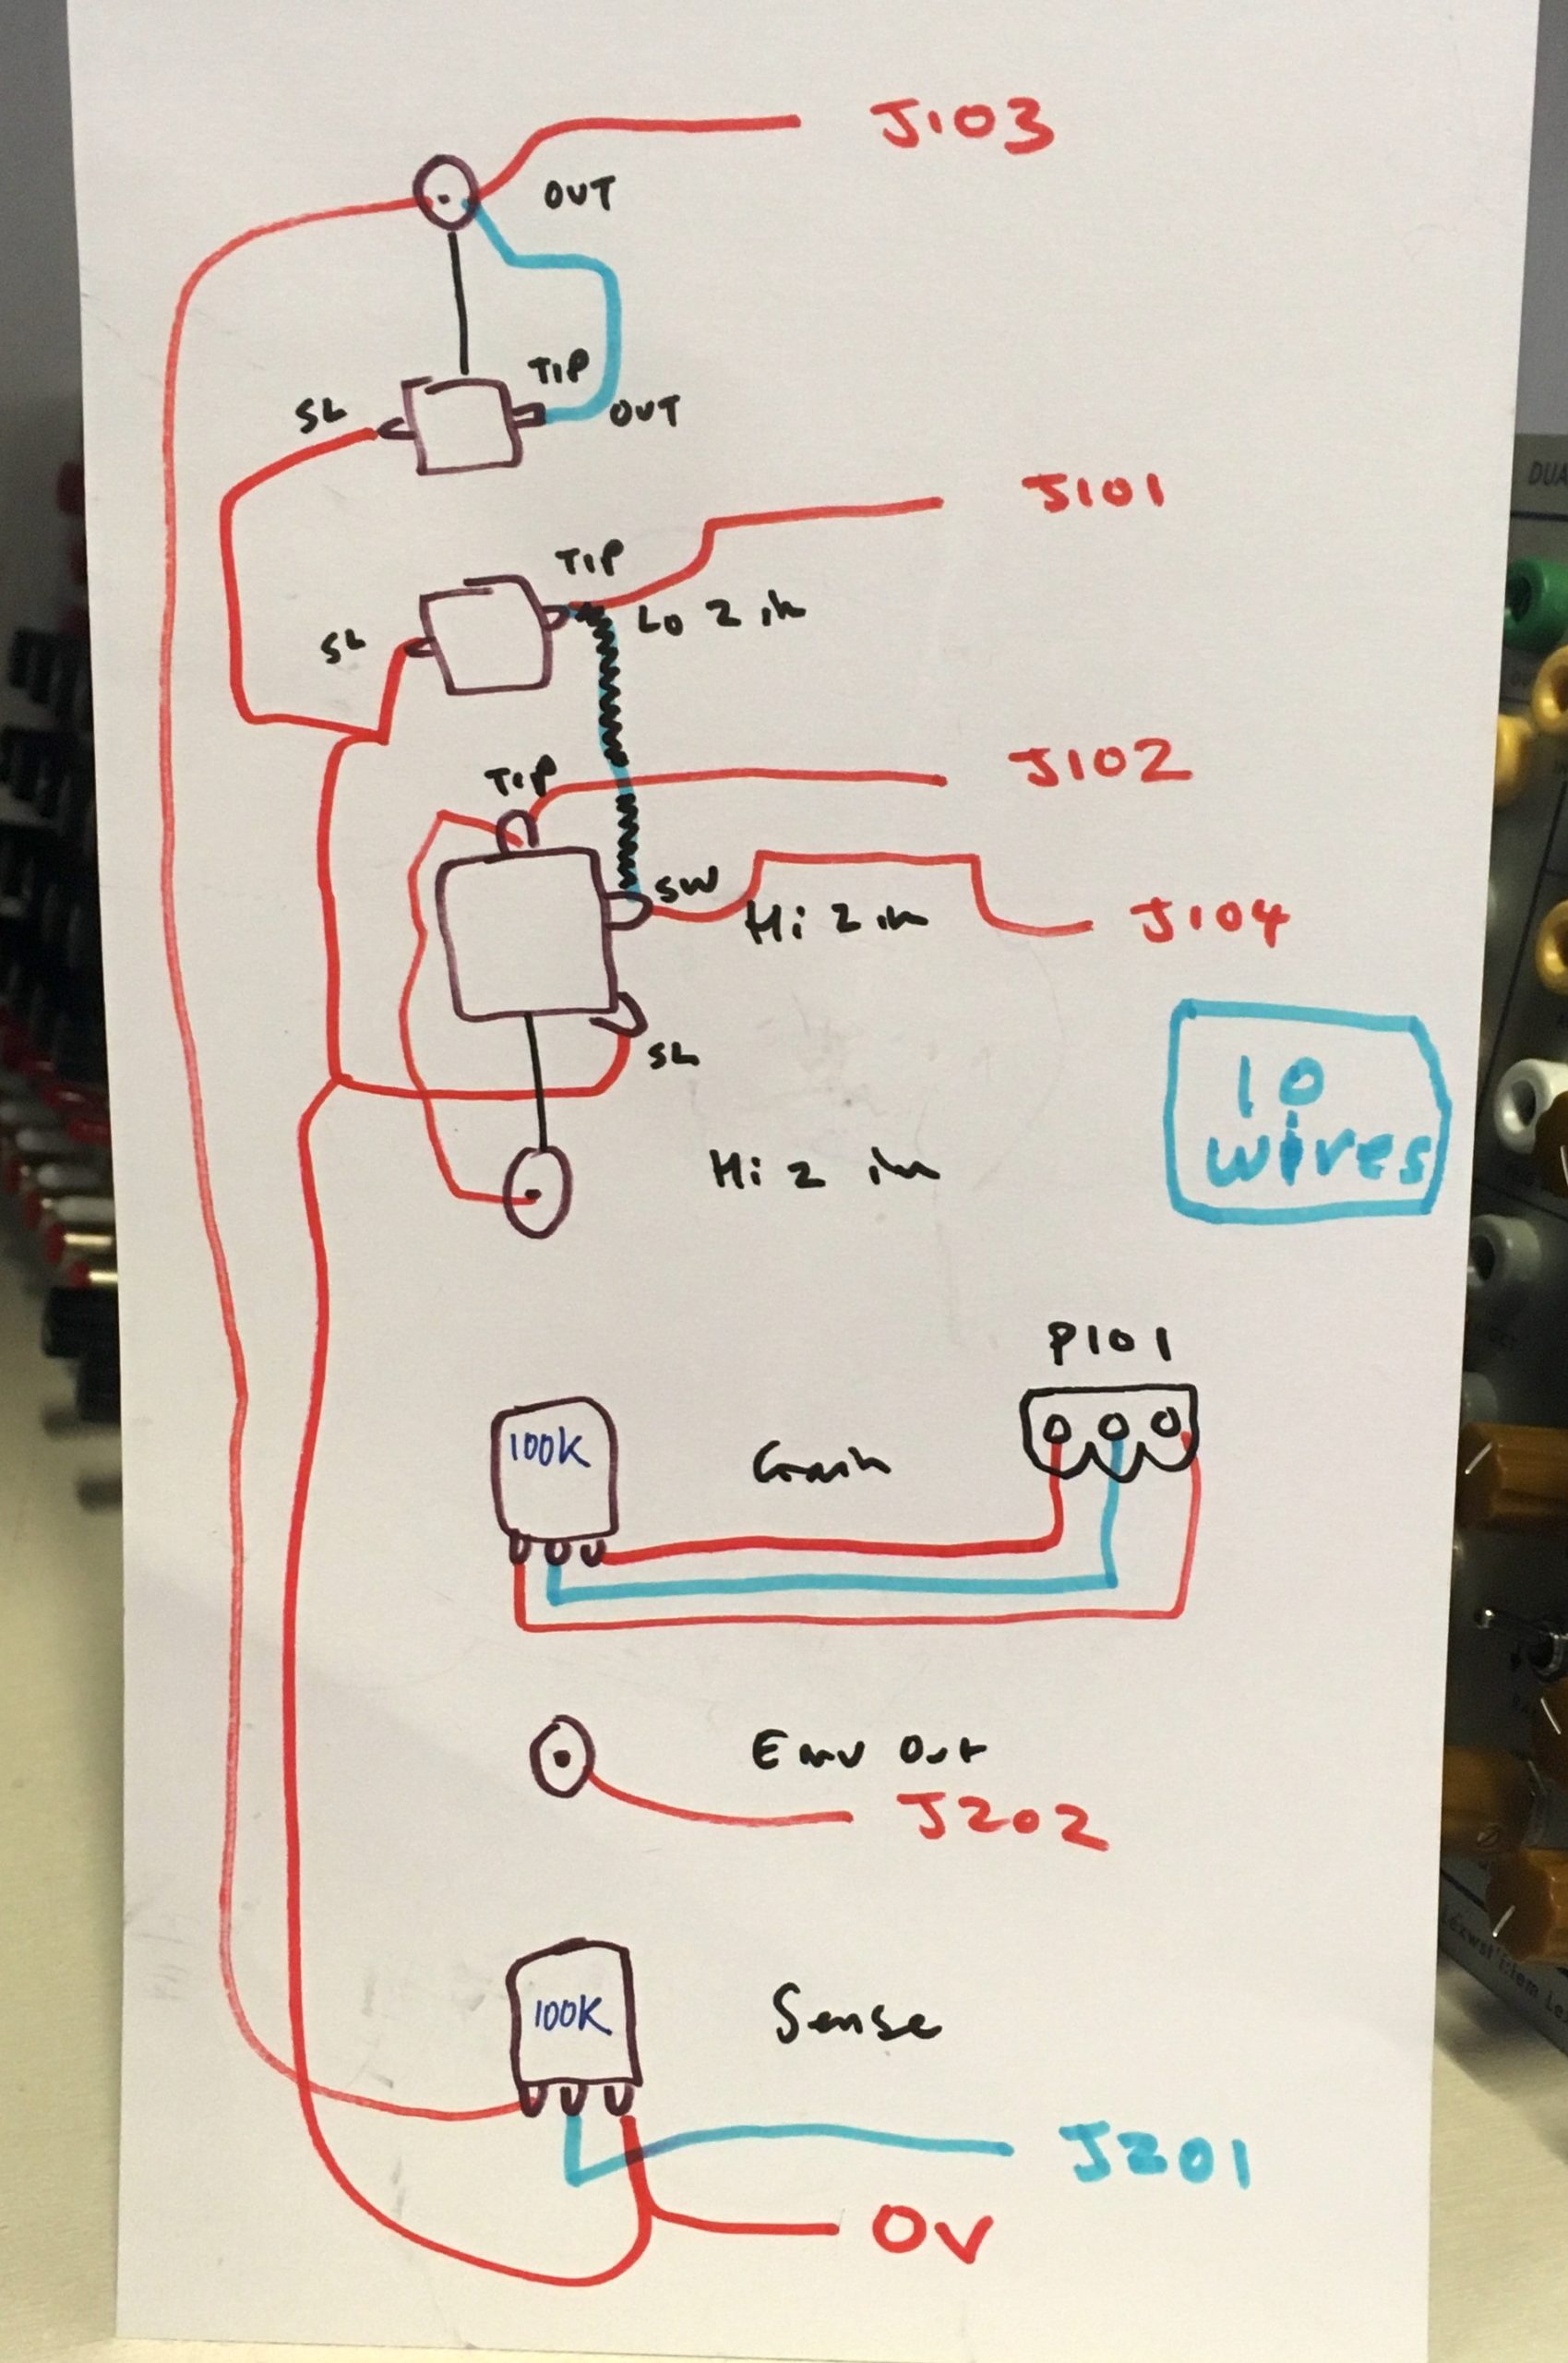 J103
OUT
TIP
SL
OUT
J101
TIP
Lo Z in
SL
J102
TIP
SW
Hi Z in
J104
SL
10
wires
Hi Z in
P101
100K
Gain
Env Out
J202
100K
Sense
J201
0V
DUA